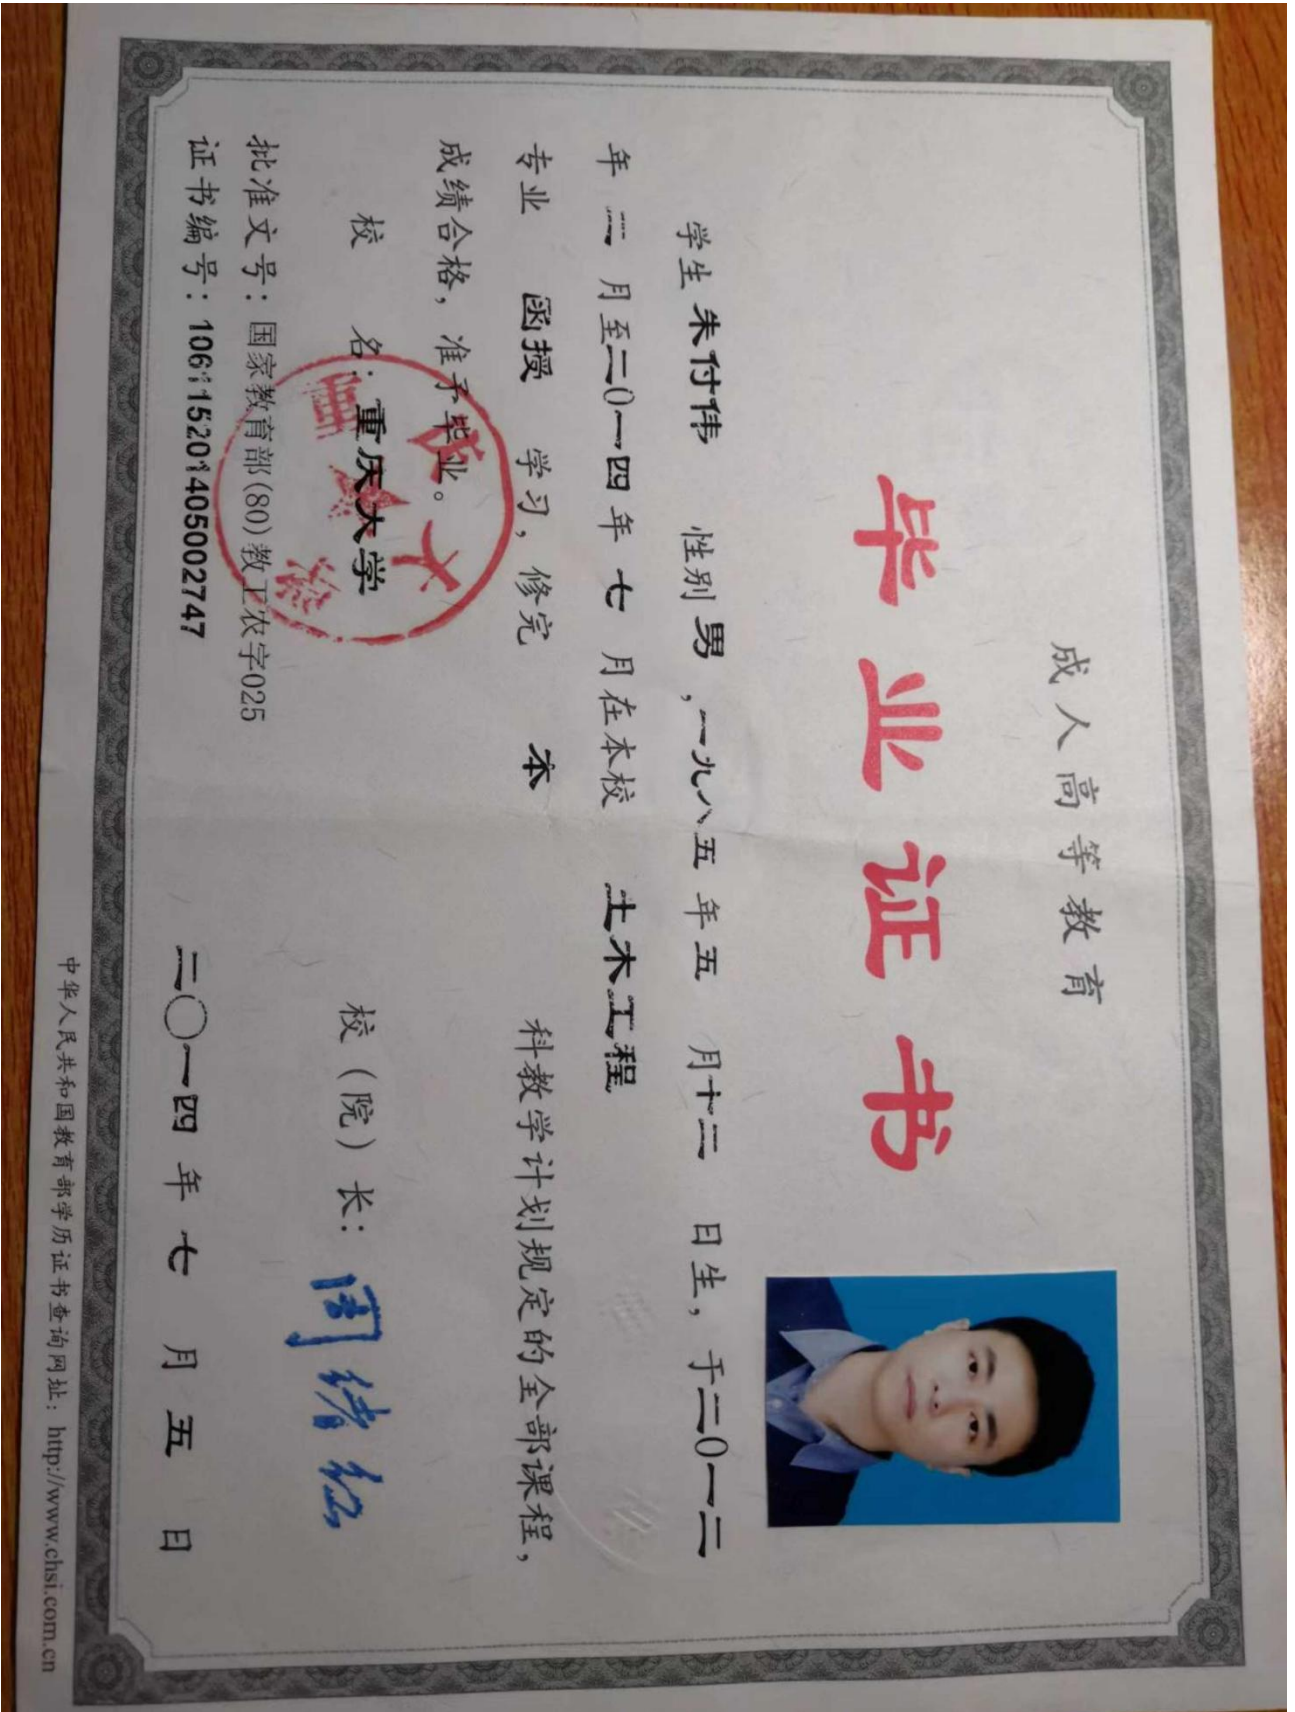 成人高等教育
毕业证书
学生 朱付伟 性别 男 ,一九八五 年 五 月 十二 日生，于二0一二
年 二 月至二0一四 年 七 月在本校 土木工程
专业 函授 学习，修完 本 科教学计划规定的全部课程，
成绩合格，准予毕业。
校 名：重庆大学 校（院）长：周绪红
批准文号：国家教育部(80)教工农字025
证书编号：106115201405002747 二〇一四 年 七 月 五 日
中华人民共和国教育部学历证书查询网址：http://www.chsi.com.cn